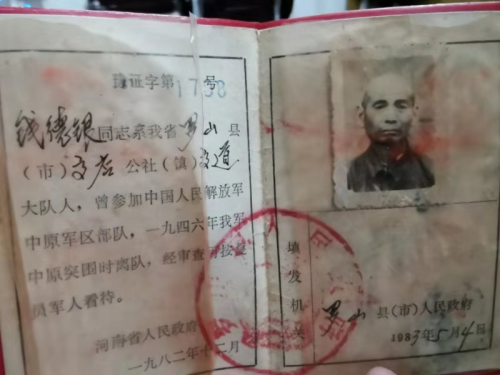 豫证字第1738号
钱德银同志系我省罗山县
(市)彭店公社(镇)
大队人,曾参加中国人民解放军
中原军区部队,一九四六年我军
中原突围时离队,经审查可按复
员军人看待。
河南省人民政府
一九八二年十二月
填发机关
罗山县(市)人民政府
1983年5月4日